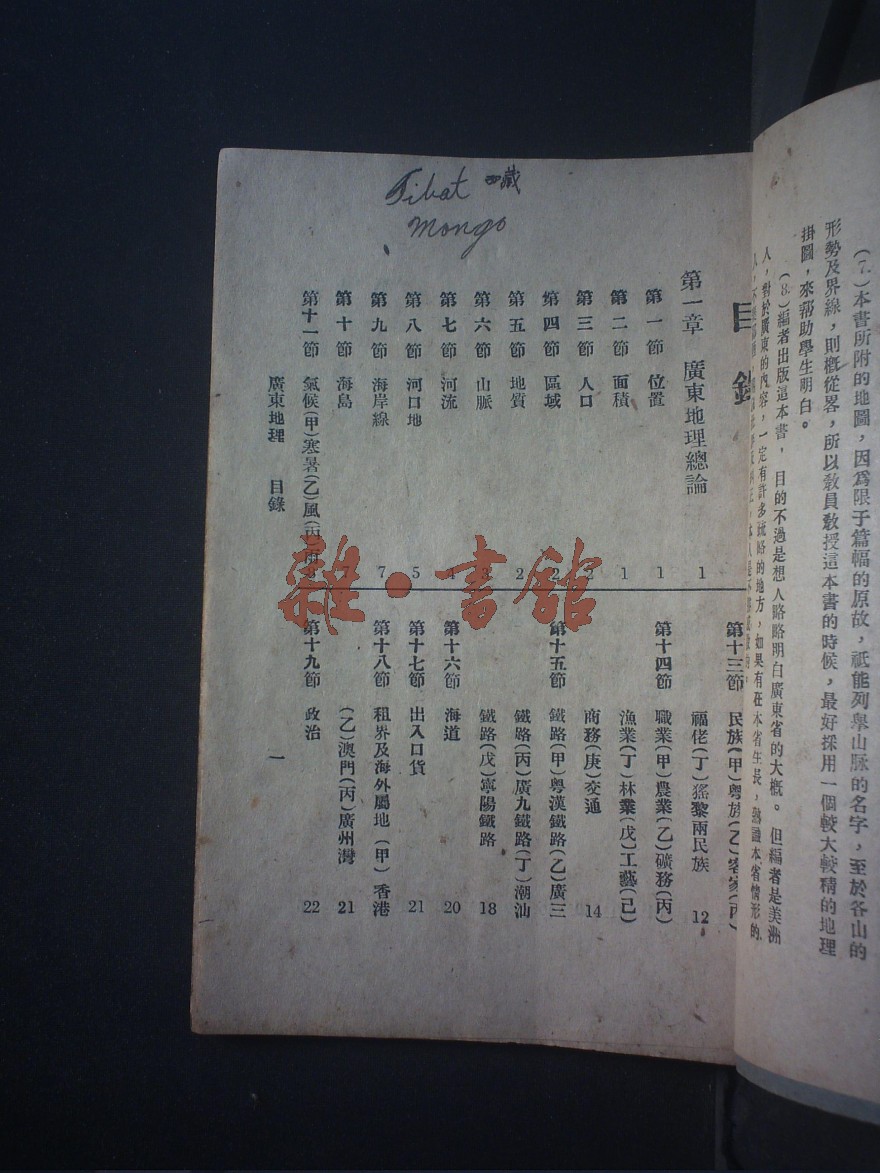 (7.)本書所附的地圖，因爲限于篇幅的原故，祇能列舉山脈的名字，至於各山的
形勢及界線，則槪從畧，所以敎員敎授這本書的時候，最好採用一個較大較精的地理
掛圖，來帮助學生明白。
(8.)編者出版這本書，目的不過是想人略略明白廣東省的大槪。但編者是美洲
人，對於廣東的內容，一定有許多疏略的地方，如果有在本省生長，熟識本省情形的
Tibat 西藏
Mongo
目錄
第一章 廣東地理總論 1
第一節 位置 1
第二節 面積 1
第三節 人口 2
第四節 區域 2
第五節 地質 2
第六節 山脈 3
第七節 河流 4
第八節 河口地 5
第九節 海岸線 7
第十節 海島 7
第十一節 氣候(甲)寒暑(乙)風(丙)雨
第十三節 民族(甲)粤族(乙)客家(丙)
福佬(丁)猺黎兩民族 12
第十四節 職業(甲)農業(乙)礦務(丙)
漁業(丁)林業(戊)工藝(己)
商務(庚)交通 14
第十五節 鐵路(甲)粤漢鐵路(乙)廣三
鐵路(丙)廣九鐵路(丁)潮汕
鐵路(戊)寧陽鐵路 18
第十六節 海道 20
第十七節 出入口貨 21
第十八節 租界及海外屬地(甲)香港
(乙)澳門(丙)廣州灣 21
第十九節 政治 22
廣東地理 目錄 一
雜·書館